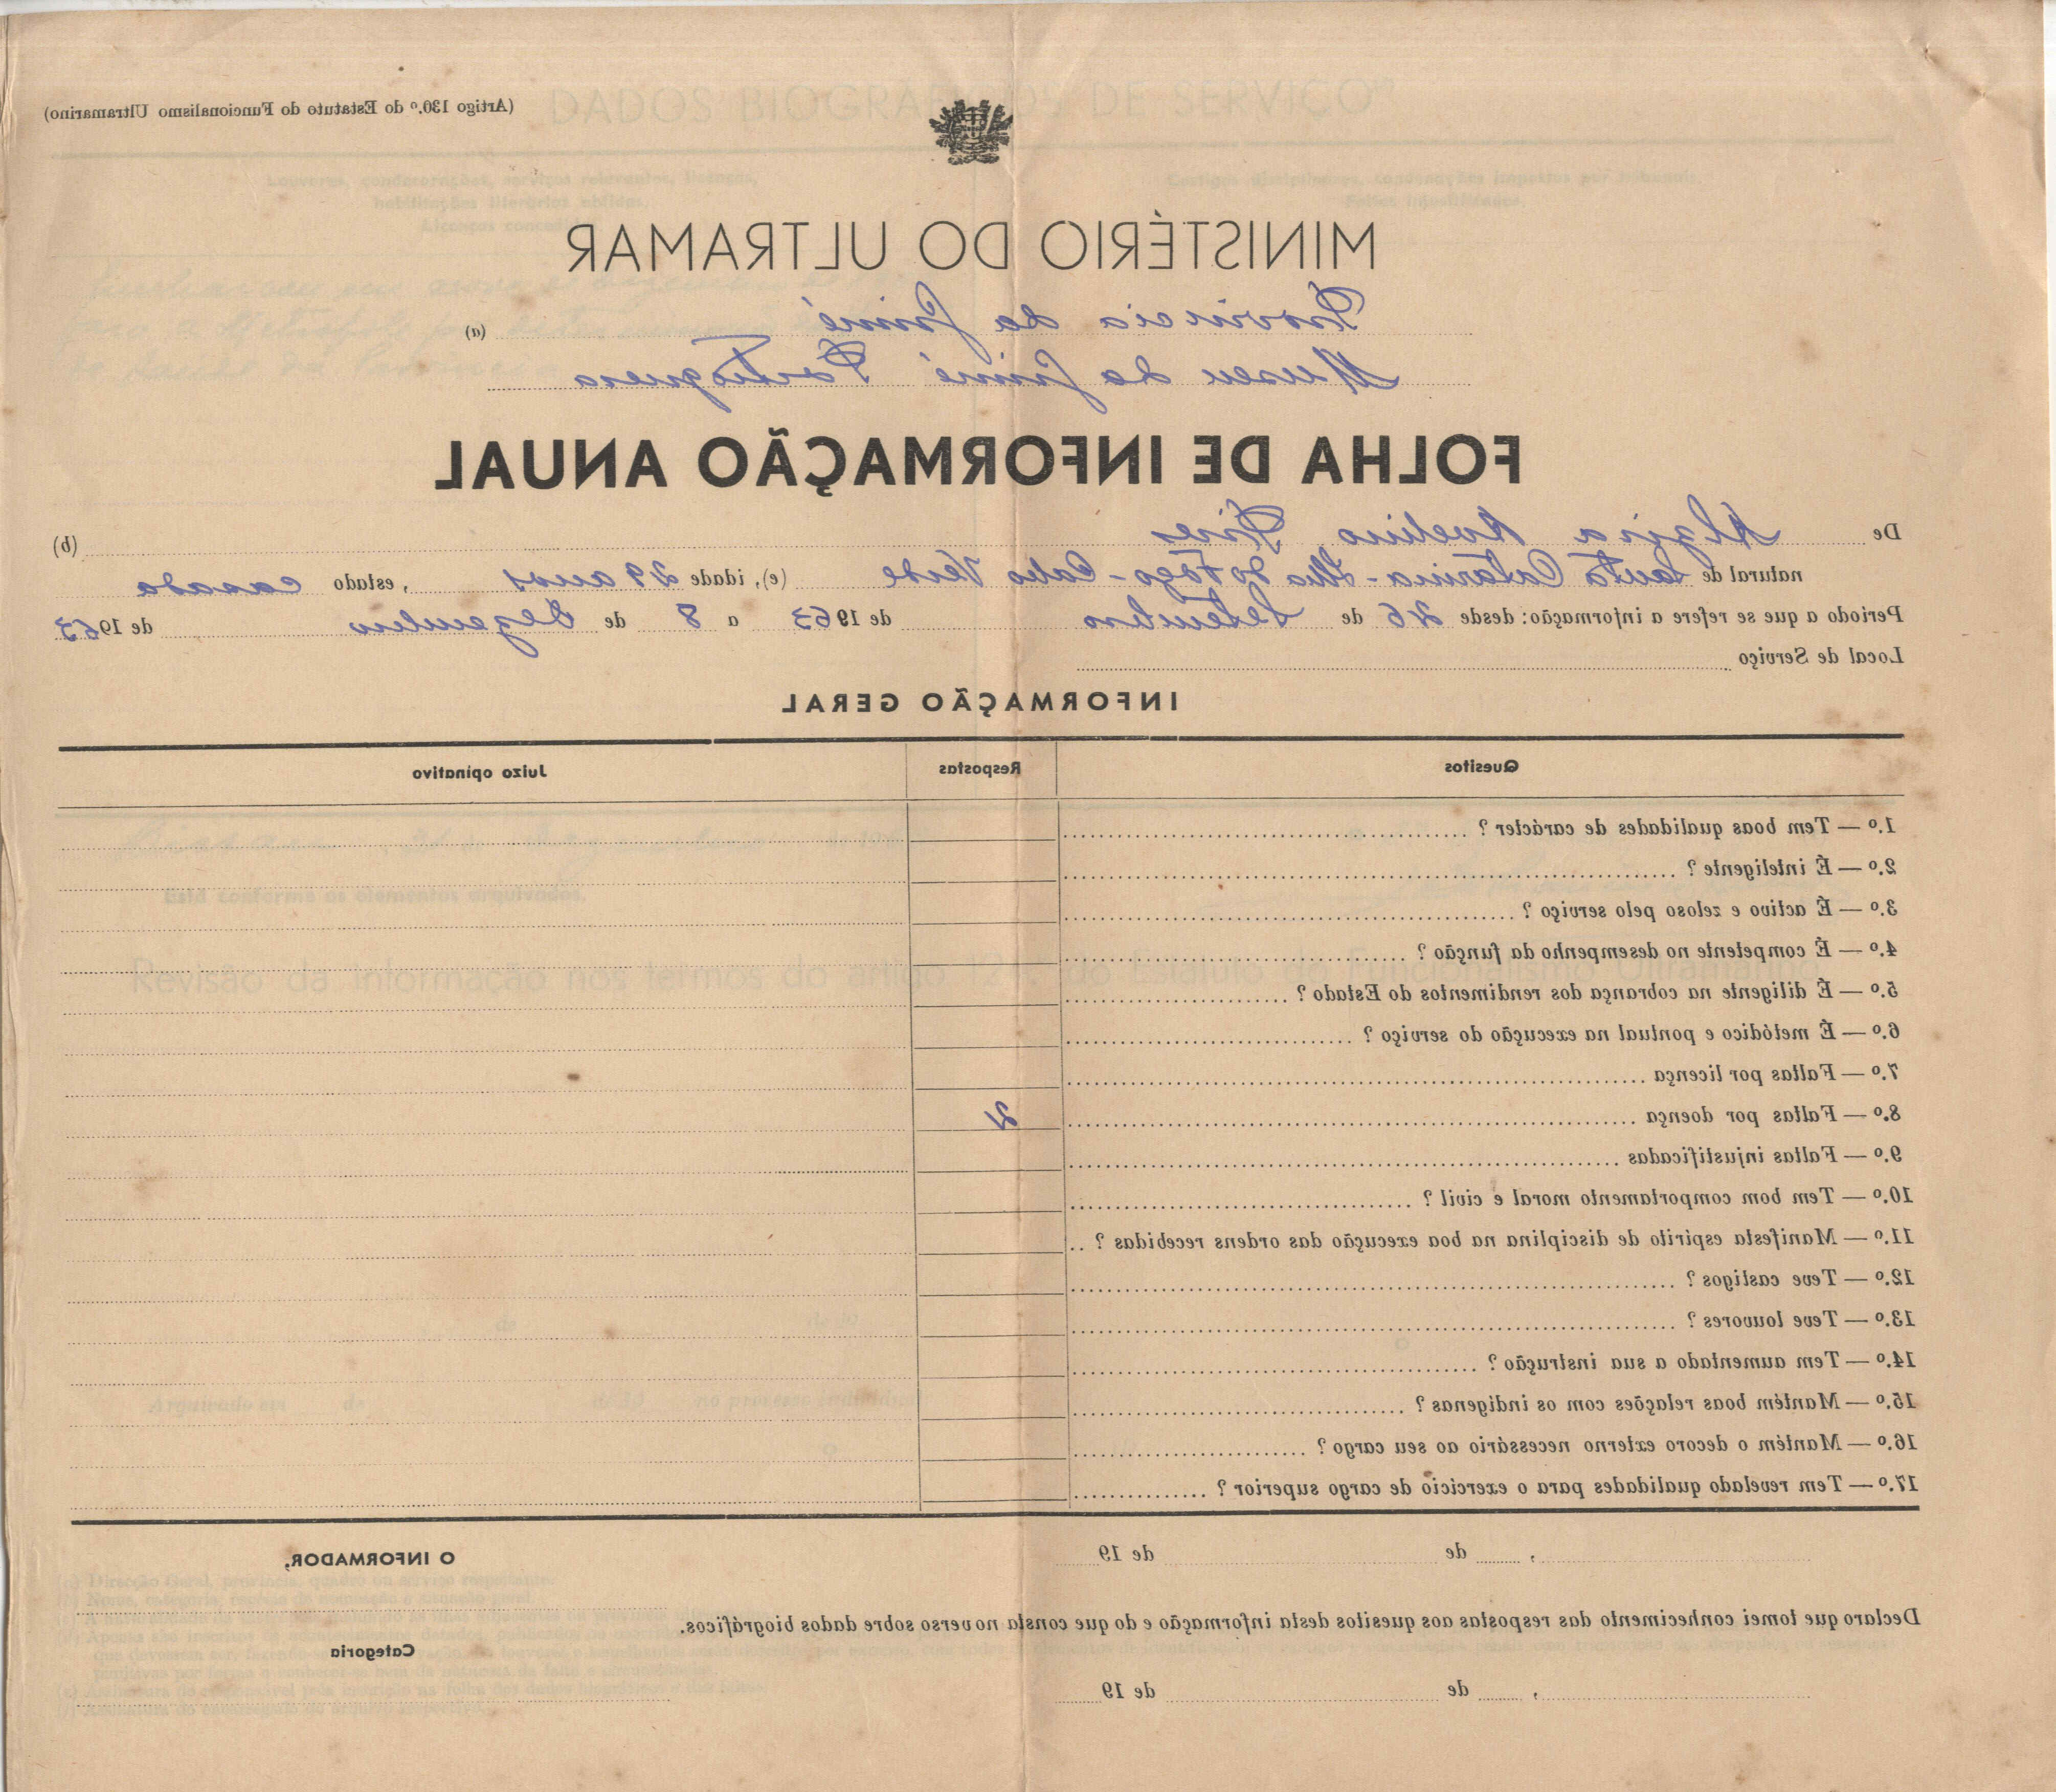 (Artigo 130.º do Estatuto do Funcionalismo Ultramarino)
MINISTÉRIO DO ULTRAMAR
Provincia da Guiné (a)
Museu da Guiné Portuguesa
FOLHA DE INFORMAÇÃO ANUAL
De Alzira Avelino Pires (b)
natural de Santa Catarina - Ilha do Fogo - Cabo Verde (e), idade 29 anos, estado casada
Periodo a que se refere a informação: desde 26 de Setembro de 1963 a 8 de Dezembro de 1963
Local de Serviço
INFORMAÇÃO GERAL
Quesitos Respostas Juizo opinativo
1.º — Tem boas qualidades de carácter ?
2.º — É inteligente ?
3.º — É activo e zeloso pelo serviço ?
4.º — É competente no desempenho da função ?
5.º — É diligente na cobrança dos rendimentos do Estado ?
6.º — É metódico e pontual na execução do serviço ?
7.º — Faltas por licença
8.º — Faltas por doença 2
9.º — Faltas injustificadas
10.º — Tem bom comportamento moral e civil ?
11.º — Manifesta espírito de disciplina na boa execução das ordens recebidas ?
12.º — Teve castigos ?
13.º — Teve louvores ?
14.º — Tem aumentado a sua instrução ?
15.º — Mantém boas relações com os indígenas ?
16.º — Mantém o decoro externo necessário ao seu cargo ?
17.º — Tem revelado qualidades para o exercício de cargo superior ?
, de de 19
O INFORMADOR,
Declaro que tomei conhecimento das respostas aos quesitos desta informação e do que consta no verso sobre dados biográficos.
Categoria
, de de 19